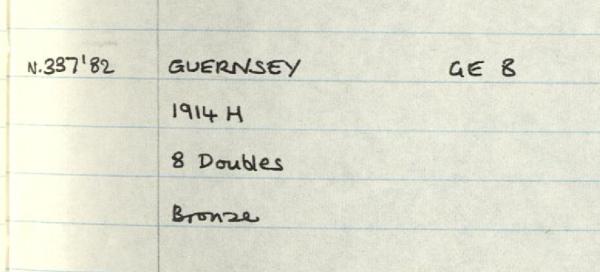 N.337'82 GUERNSEY GE 8
1914 H
8 Doubles
Bronze